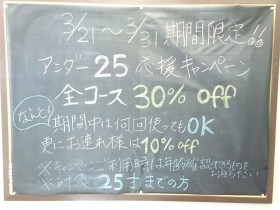 3/21～3/31 期間限定!!
アンダー25 応援キャンペーン
全コース 30% off
なんと! 期間中は何回使ってもOK
更にお連れ様は10% off
※キャンペーンご利用時は年齢確認できるものをお持ちください
※対象 25才までの方